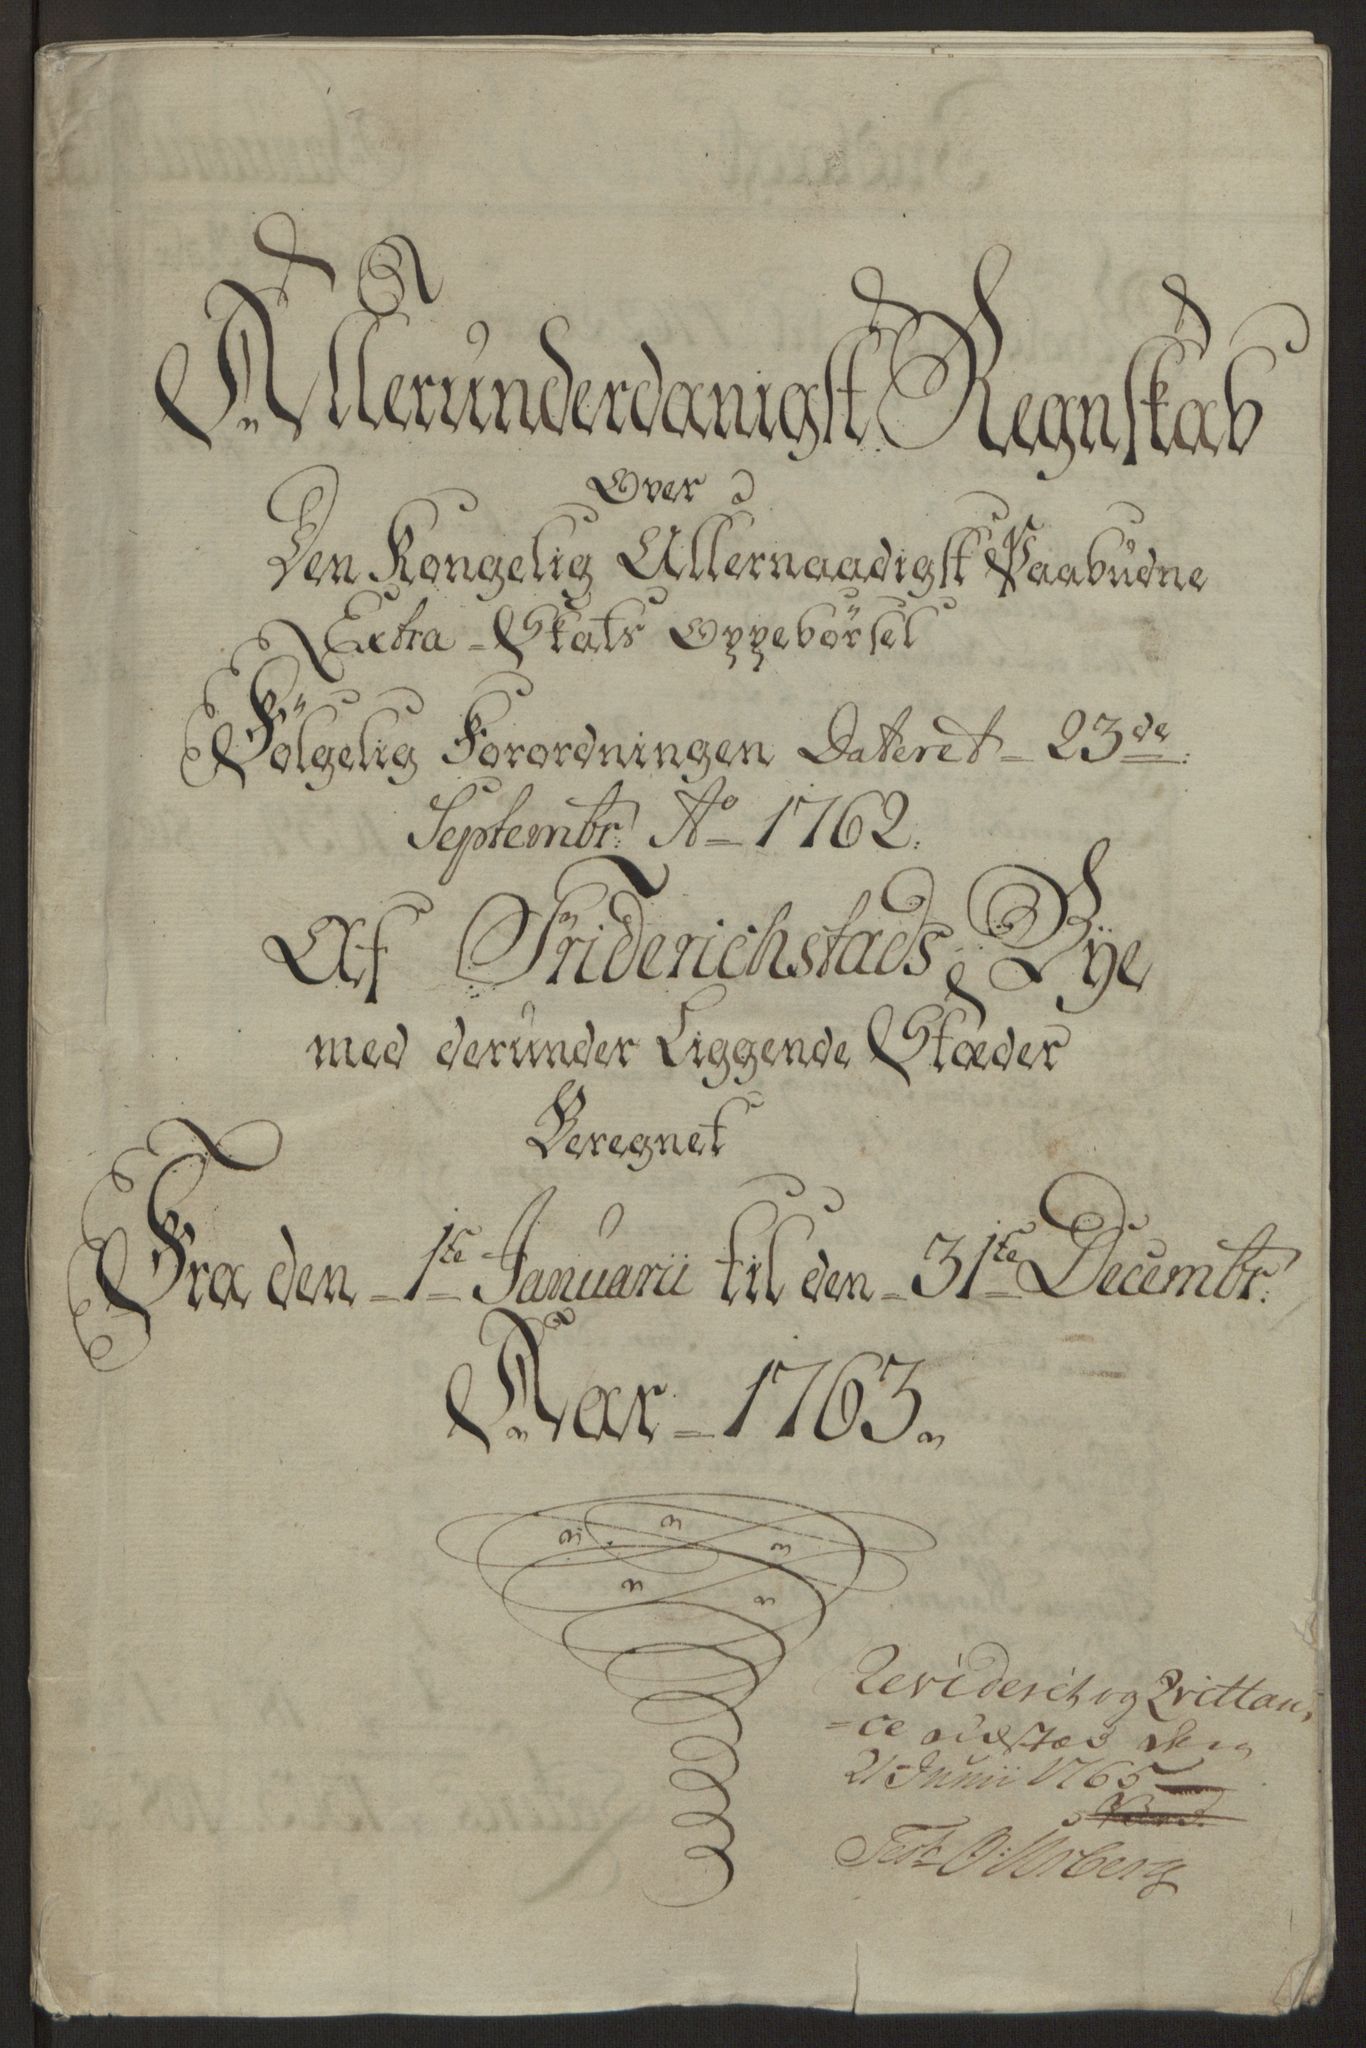 Allerunderdanigst Regnskab
Over
Den Kongelig Allernaadigst Paabudne
Extra-Skats Oppebörsel
Fölgelig Forordningen Dateret - 23de
Septembr: Ao 1762.
Af Friderichstads Bye
med derunder Liggende Stæder
Beregnet
Fra den - 1te Januarii til den - 31te Decembr:
Aar - 1763.
Revideret og Qvittan-
-ce udstæd den
21 Junii 1765
Test O: Urberg